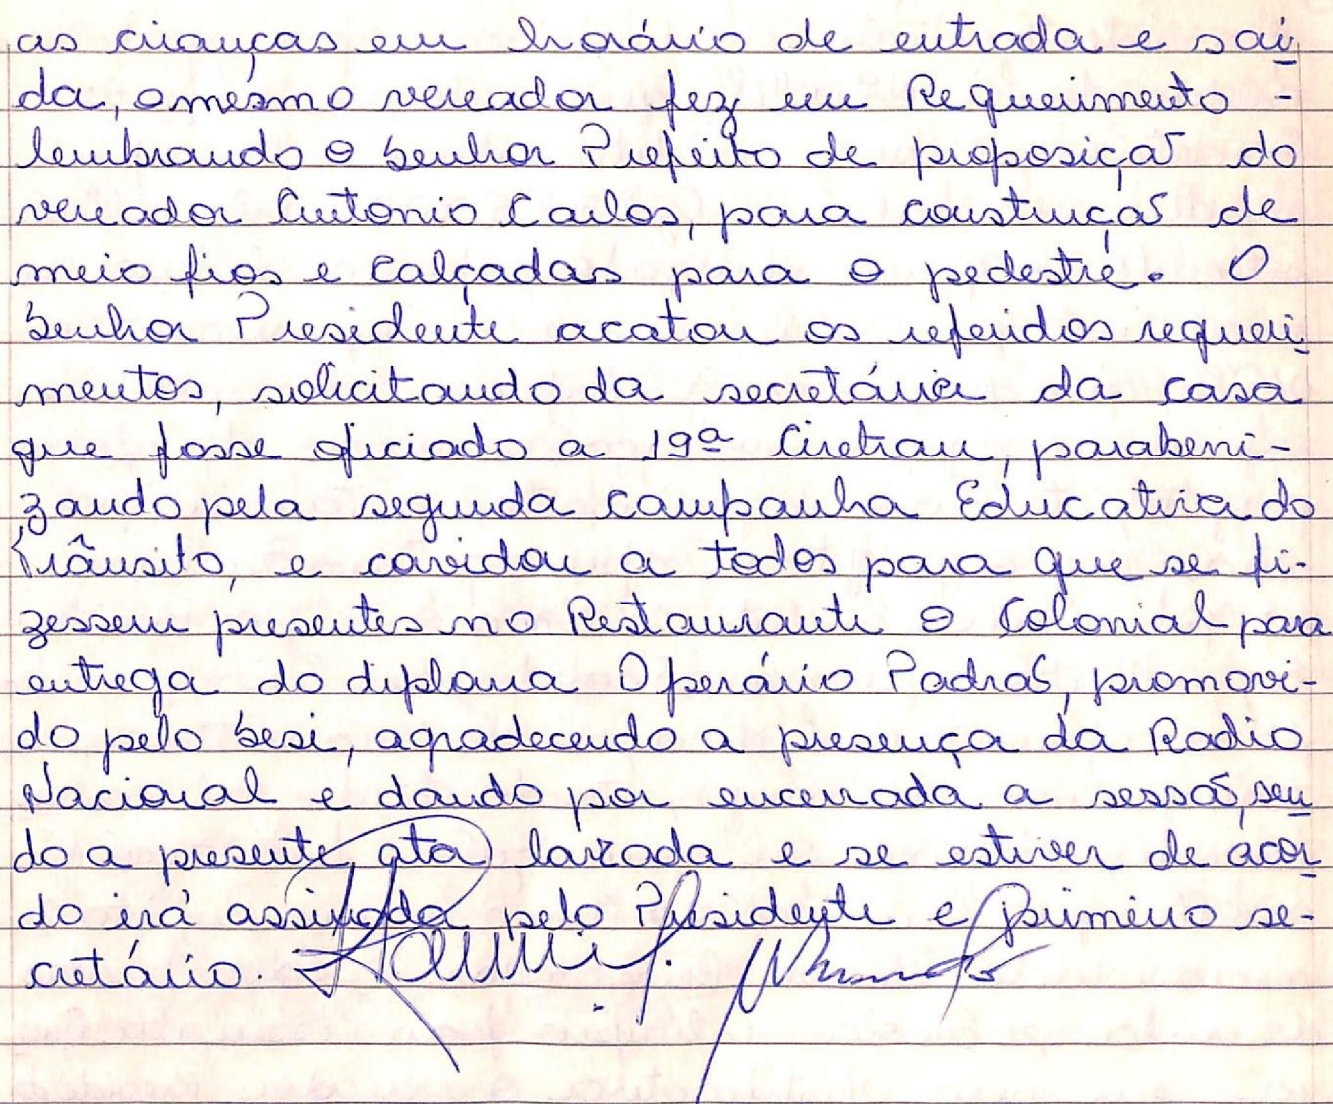 as crianças em horário de entrada e sai
da, o mesmo vereador fez um Requerimento -
lembrando o Senhor Prefeito de proposição do
vereador Antonio Carlos, para construção de
meio fios e calçadas para o pedestre. O
Senhor Presidente acatou os referidos requeri
mentos, solicitando da secretária da casa
que fosse oficiado a 19ª Ciretran, parabeni-
zando pela segunda campanha Educativa do
Trânsito, e cavidou a todos para que se fi-
zessem presentes no Restaurante O Colonial para
entrega do diploma Operário Padrão, promovi-
do pelo Sesi, agradecendo a presença da Radio
Nacional e dando por encerrada a sessão, sen
do a presente ata lavrada e se estiver de acor
do irá assinada pelo Presidente e primeiro se-
cretário.